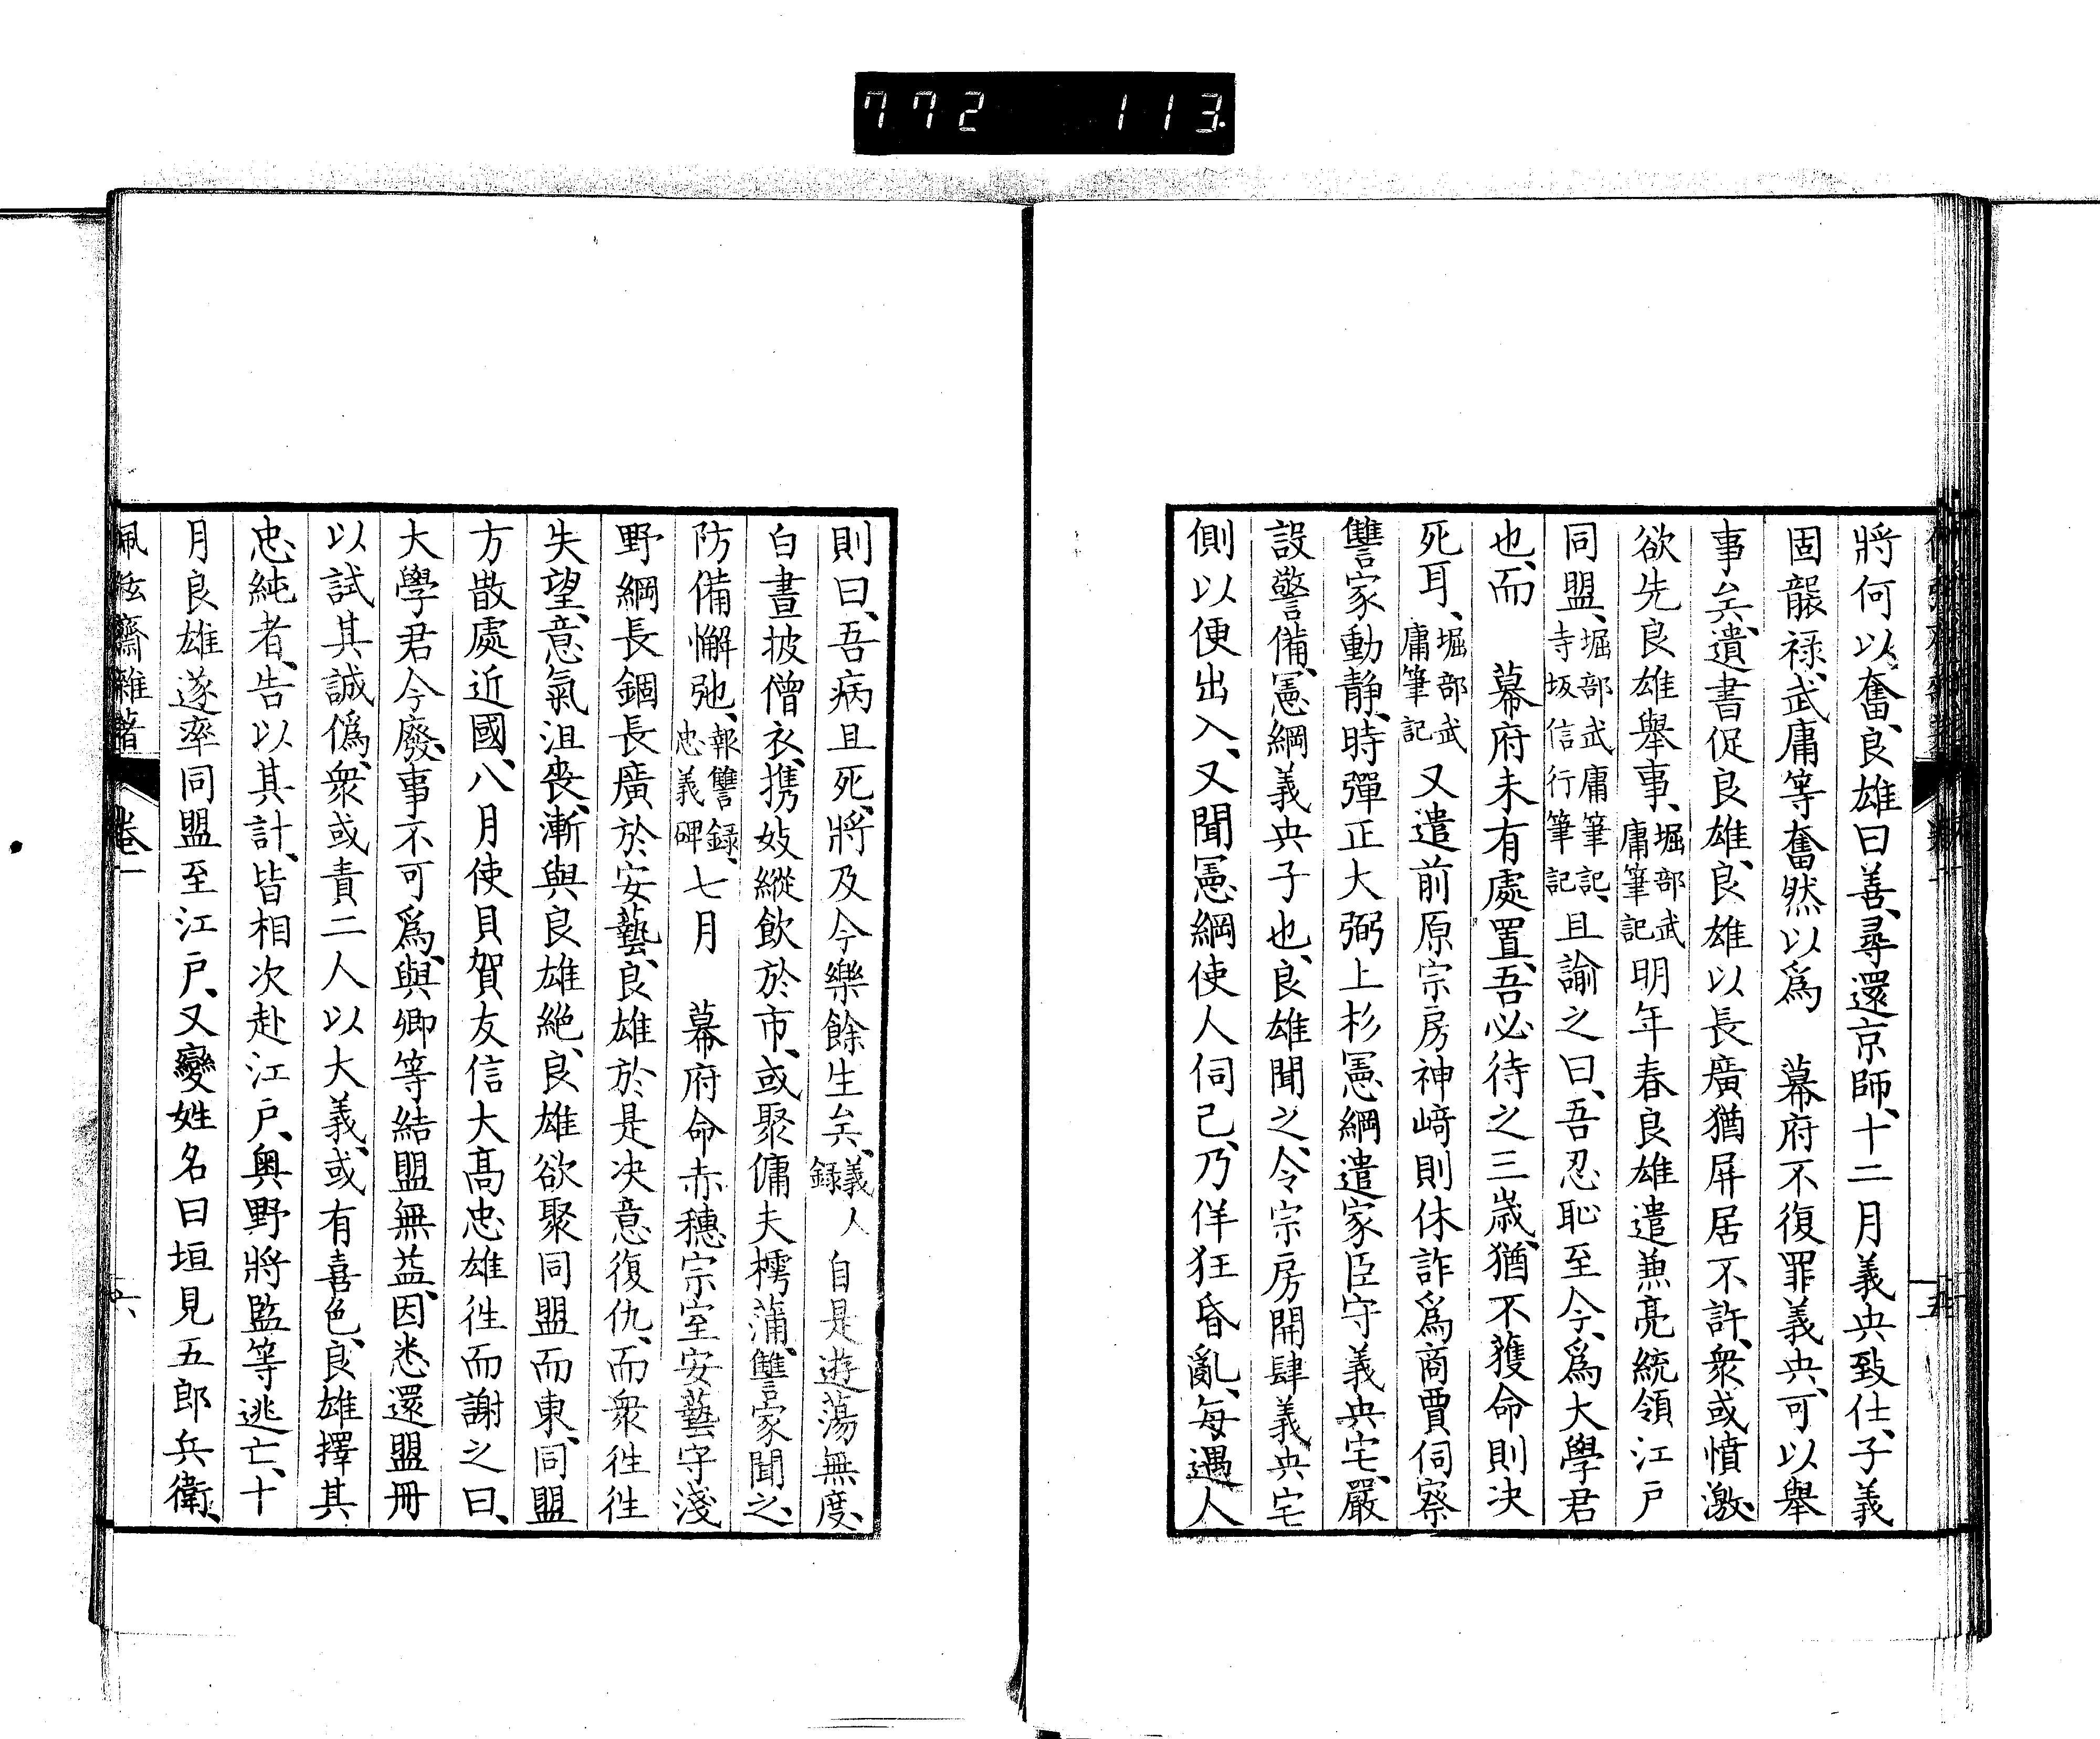 772 113
將何以奮、良雄曰善、尋還京師、十二月義央致仕、子義
固襲禄、武庸等奮然以爲　幕府不復罪義央、可以舉
事矣、遺書促良雄、良雄以長廣猶屏居不許、衆或憤激、
欲先良雄舉事、堀部武庸筆記明年春良雄遣兼亮統領江戸
同盟、堀部武庸筆記、寺坂信行筆記且諭之曰、吾忍恥至今、爲大學君
也、而　幕府未有處置、吾必待之三歳、猶不獲命則決
死耳、堀部武庸筆記又遣前原宗房神﨑則休詐爲商賈伺察
讐家動静、時彈正大弼上杉憲綱遣家臣守義央宅、嚴
設警備、憲綱義央子也、良雄聞之、令宗房開肆義央宅
側以便出入、又聞憲綱使人伺己、乃佯狂昏亂、每遇人
則曰、吾病且死、將及今樂餘生矣、義人録自是遊蕩無度、
白晝披僧衣、携妓縱飲於市、或聚傭夫樗蒲、讐家聞之、
防備懈弛、報讐録、忠義碑七月　幕府命赤穗宗室安藝守淺
野綱長錮長廣於安藝、良雄於是決意復仇、而衆徃徃
失望、意氣沮喪、漸與良雄絶、良雄欲聚同盟而東、同盟
方散處近國、八月使貝賀友信大高忠雄徃而謝之曰、
大學君今廢、事不可爲、與卿等結盟無益、因悉還盟冊
以試其誠僞、衆或責二人以大義、或有喜色、良雄擇其
忠純者、告以其計、皆相次赴江戸、奥野將監等逃亡、十
月良雄遂率同盟至江戸、又變姓名曰垣見五郎兵衛、
佩弦齋雜著
卷一